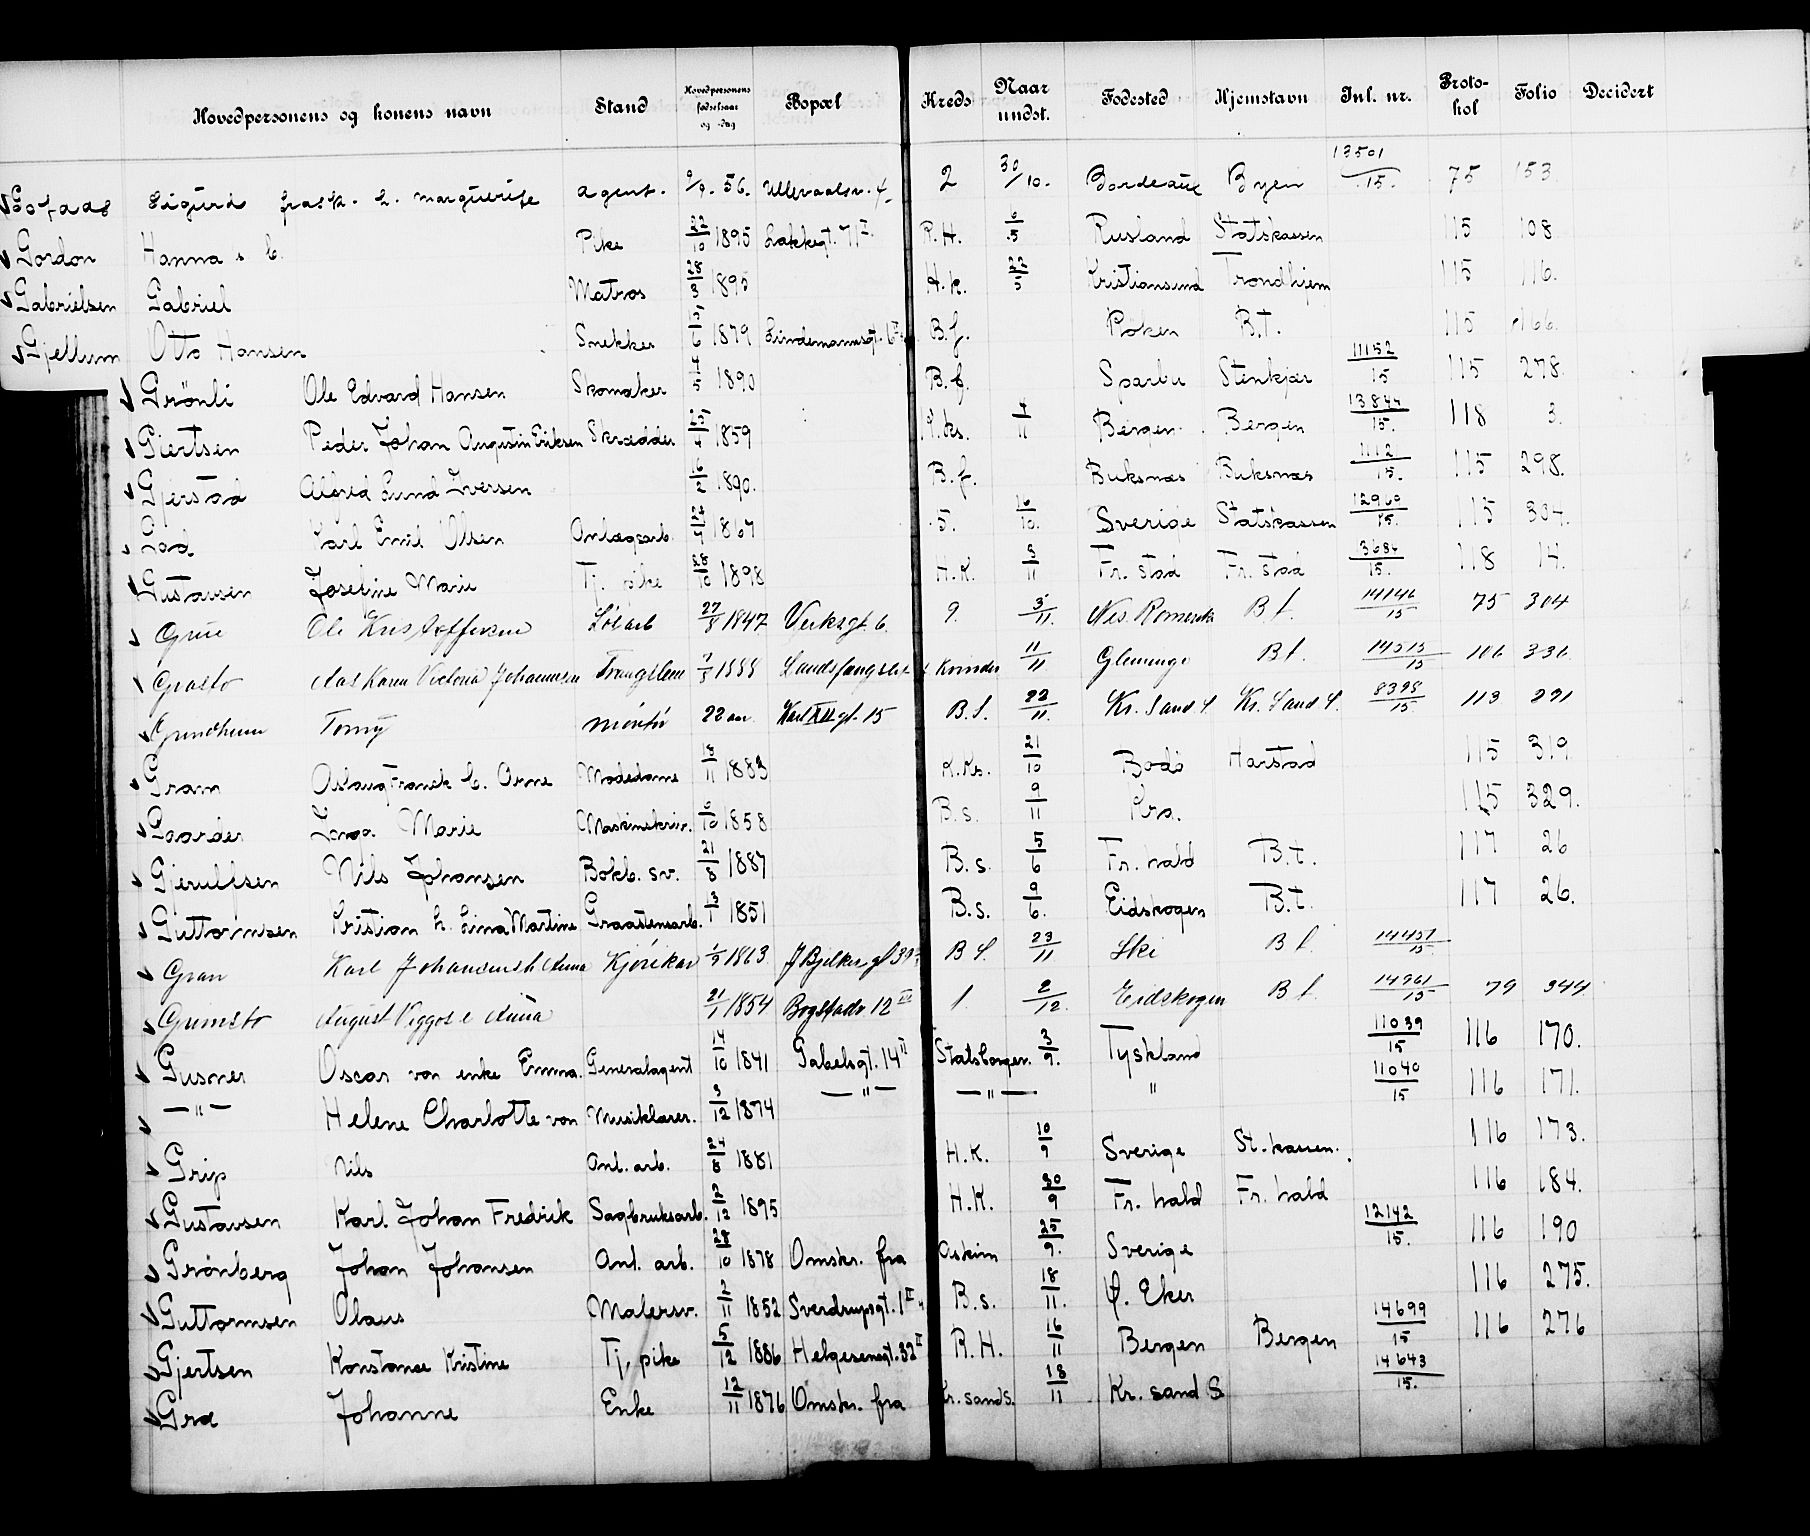 Hovedpersonens og konens navn Stand Hovedpersonens fødselsaar og -dag Bopæl Kreds Naar undst. Fødested Hjemstavn Inl. nr. Protokol Folio Decidert
Sigurd frask. h. Marguerite Agent. 9/9. 56. Ullevaalsv. 4 2 30/10. Bordeaux Byen 13501/15. 75 153
Gordon Hanna Pike 22/10 1895 Lakkegt. 71 I. R.H. 6/5 Rusland Statskassen 115 108
Gabrielsen Gabriel Matros 28/3 1895 H.k. 22/5 Kristiansund Trondhjem 115 116.
Gjellum Otto Hansen Snekker 15/6 1879 Lindemannsgt. B.f. Røken B.T. 115 166.
Grönli Ole Edvard Hansen Skomaker 4/5 1890 B.f. Sparbu Stenkjær 11152/15 115 278.
Giertsen Peder Johan Augustin Eriksen Skrædder 25/4 1859 K.ks. 4/11 Bergen Bergen 13844/15. 118 3.
Gjerstad Alfred Lund Iversen 16/2 1890. B.f. Buksnæs Buksnæs 1112/15. 115 298.
God Karl Emil Olsen Anlægsarb. 1867 5. 16/10. Sverige Statskassen 12960/15. 115 304.
Gustavsen Josefine Marie Tj. pike 28/10 1898 H.K. 3/11 Fr. stad Fr. stad 3684/15. 118 14.
Grue Ole Kristoffersen Løsarb 27/8 1847 Verksgt. 6. 9. 3/11. Nes Romerike B f. 14146/15 75 304
Karen Victoria Johannesen 1888 Kvinder 11/11 Glemminge B f. 14515/15 106 336
Grundheim Tomy montør 22 aar Karl XII gt. 15 B.f. 22/11. Kr. Sand S. Kr. Sand S. 8398/15. 113 291
Gram Aslaug Franck Arne Modedame 18/11 1883 K.Ks. 21/10 Bodö Harstad 115 319.
Gaarder Inga Marie Maskinskriv. 6/10 1858 B.s. 9/11 Kra. 115 329.
Gjerulfsen Nils Johansen Bokb. sv. 21/8 1887 B.s. 5/6 Fr. hald B.t. 117 26
Guttormsen Kristian h. Lina Martine Graastensarb. 13/1 1851 B.s. 9/6. Eidskogen B.t. 117 26.
Gran Karl Johansen h Anna Kjørekar 1/9 1863 J Bjelkes gt B f. 23/11 Ski B f. 14457/15
Grimsto August Viggo e Anna 21/1 1854 Bogstadv 12 III 1. 2/12. Eidskogen B f. 14961/15 79 344
Gusner Oscar von enke Emma. Generalagent 14/10 1841 Gabelsgt. 14 II Statsborgen. 3/9. Tyskland 11039/15 116 170.
— " — Helene Charlotte von Musiklærer. 3/12 1874 — " — — " — " 11040/15 116 171.
Grip Nils Anl. arb. 24/8 1881 H.K. 10/9 Sverige St. kassen. 116 173.
Gustavsen Karl Johan Fredrik Sagbruksarb. 2/12 1895 H.K. 30/9 Fr. hald Fr. hald 116 184.
Grönberg Johan Johansen Anl. arb. 28/10 1878 Omskr. fra Askim 25/9. Sverige 12142/15. 116 190
Guttormsen Olaus Malersv. 2/11 1852 Sverdrupsgt. 1 II B.s. 18/11. Ø. Eker 116 275.
Gjertsen Konstance Kristine Tj. pike 5/12 1886 Helgesensgt. 32 II R.H. 16/11 Bergen Bergen 14699/15 116 276
Gra Johanne Enke 12/11 1876 Omskr. fra Kr. sand S. 18/11 Kr. sand S 14643/15.